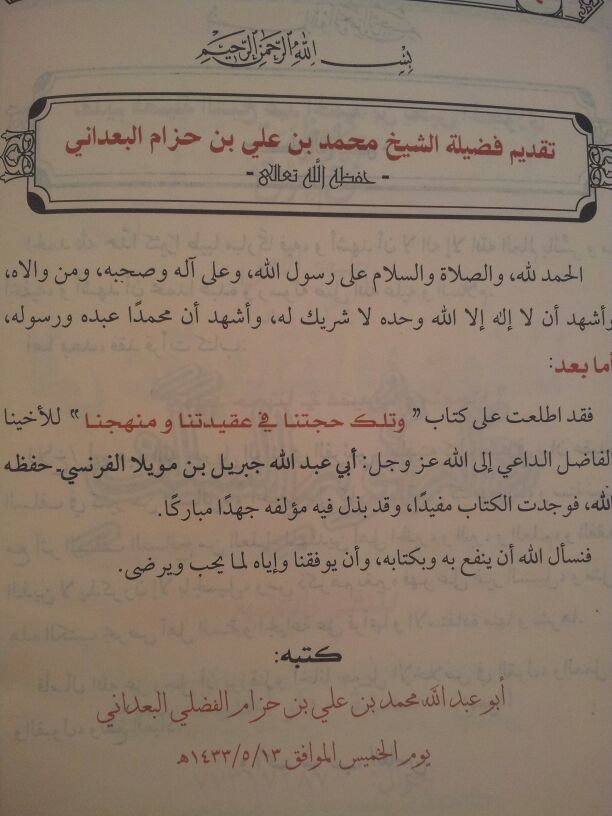 بِسْمِ اللهِ الرَّحْمَنِ الرَّحِيمِ
تقديم فضيلة الشيخ محمد بن علي بن حزام البعداني
- حفظه الله تعالى -
الحمد لله، والصلاة والسلام على رسول الله، وعلى آله وصحبه، ومن والاه،
وأشهد أن لا إله إلا الله وحده لا شريك له، وأشهد أن محمدًا عبده ورسوله،
أما بعد:
فقد اطلعت على كتاب "وتلك حجتنا في عقيدتنا و منهجنا" للأخينا
الفاضل الداعي إلى الله عز وجل: أبي عبد الله جبريل بن مويلا الفرنسي- حفظه
الله، فوجدت الكتاب مفيدًا، وقد بذل فيه مؤلفه جهدًا مباركًا.
فنسأل الله أن ينفع به وبكتابه، وأن يوفقنا وإياه لما يحب ويرضى.
كتبه:
أبو عبد الله محمد بن علي بن حزام الفضلي البعداني
يوم الخميس الموافق ١٤٣٣/٥/١٣هـ